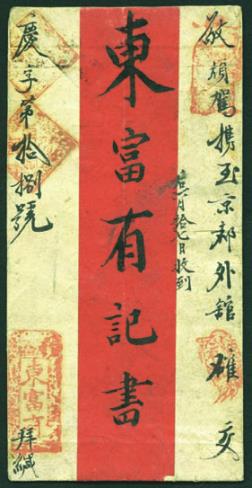 敬煩駕携至京都外舘 確交
月拾七日收到
東富有記書
慶字第拾捌號 拜緘
東富